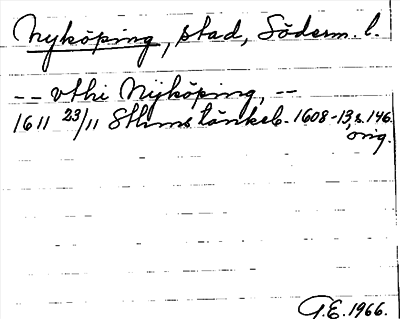 Nyköping, stad, Söderm. l.
-- vthi Nyköping, --
1611 23/11 Sthms tänkeb. 1608-13, s. 146.
orig.
G.E. 1966.